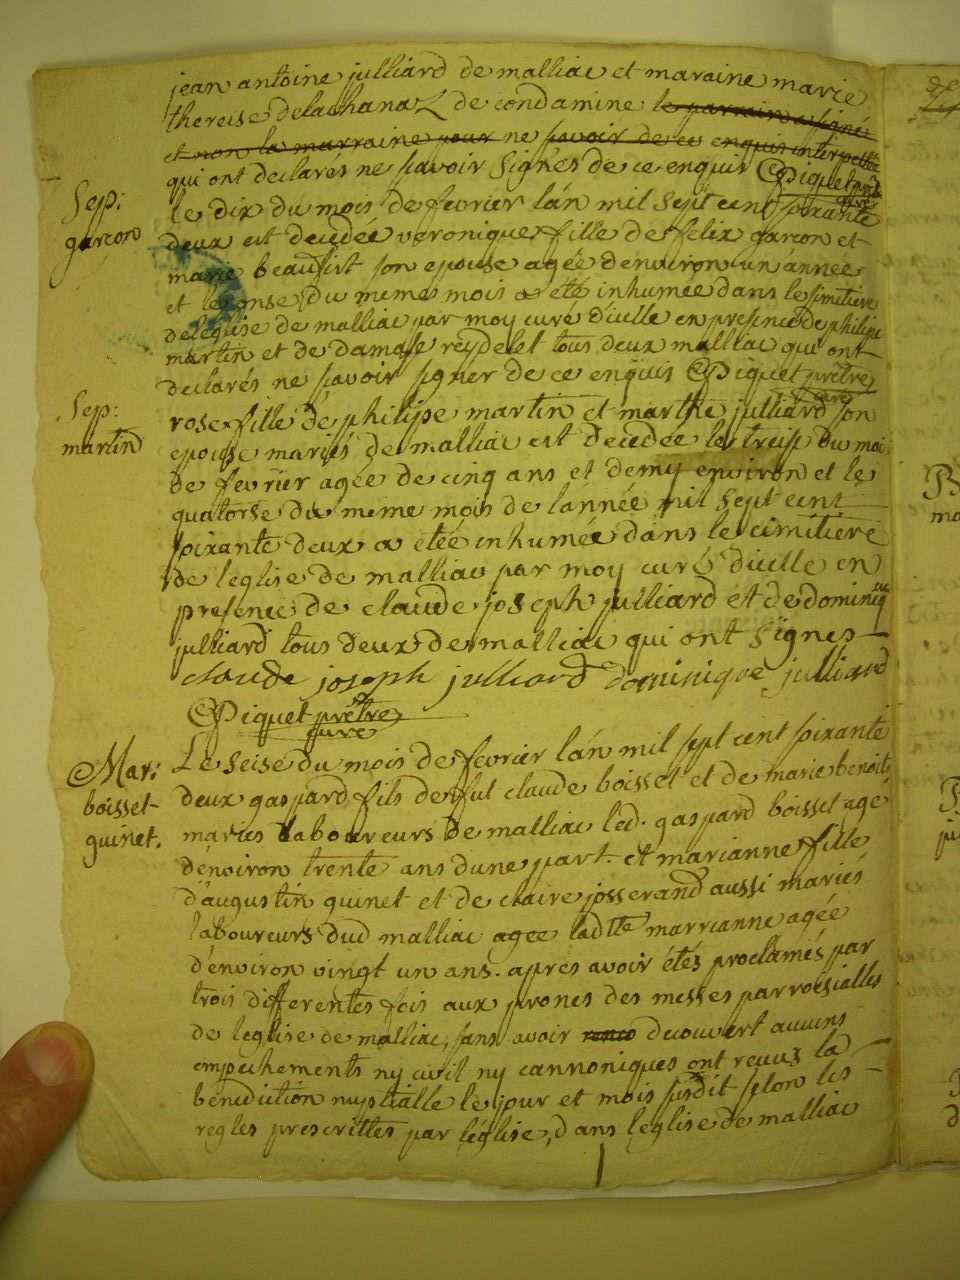 jean antoine julliard de malliac et maraine marie
therese delachanaz de condamine le parrain a signé
et non la marraine pour ne sçavoir de ce enquis interpellée
qui ont declarés ne sçavoir signés de ce enquis CPiquet prêtre
curé
Sep:
garçon
le dix du mois de fevrier lán mil sept cent soixante
deux est decedée veronique fille de felix garçon et
marie beaufirt son epouse agée denviron un année
et le onse du mimes mois a été inhumée dans le simitiere
de leglise de malliac par moy curé dicelle en presence de philipe
martin et de damase reydelet tous deux malliac qui ont
declarés ne sçavoir signer de ce enquis CPiquet prêtre
curé
Sep:
martin
rose fille de philipe martin et marthe julliard son
epouse mariés de malliac est decedée le treise du moi
de fevrier agée de cinq ans et demy environ et le
quatorse du meme mois de lannée mil sept cent
soixante deux a étée inhumée dans le cimitiere
de leglise de malliac par moy curé dicelle en
presence de claude joseph julliard et de dominique
julliard tous deux de malliac qui ont signes
claude joseph julliard dominique julliard
CPiquet prêtre
curé
Mar:
boisset
guinet.
Le seise du mois de fevrier lán mil sept cent soixante
deux gaspard fils de fut claude boisset et de marie benoit
maries laboureurs de malliac led. gaspard boisset agé
dénviron trente ans dune part. et marianne fille
d'augustin guinet et de claire josserand aussi mariés
laboureurs dud malliac agee ladtte marrianne agée
d'environ vingt un ans. apres avoir étés proclamés par
trois differentes fois aux prones des messes parroissialles
de leglise de malliac, sans avoir decouvert aucuns
empechements ny civil ny cannoniques ont recus la
benediction nuptialle le jour et mois susdit selon les
regles prescrittes par léglise, dans leglise de malliac